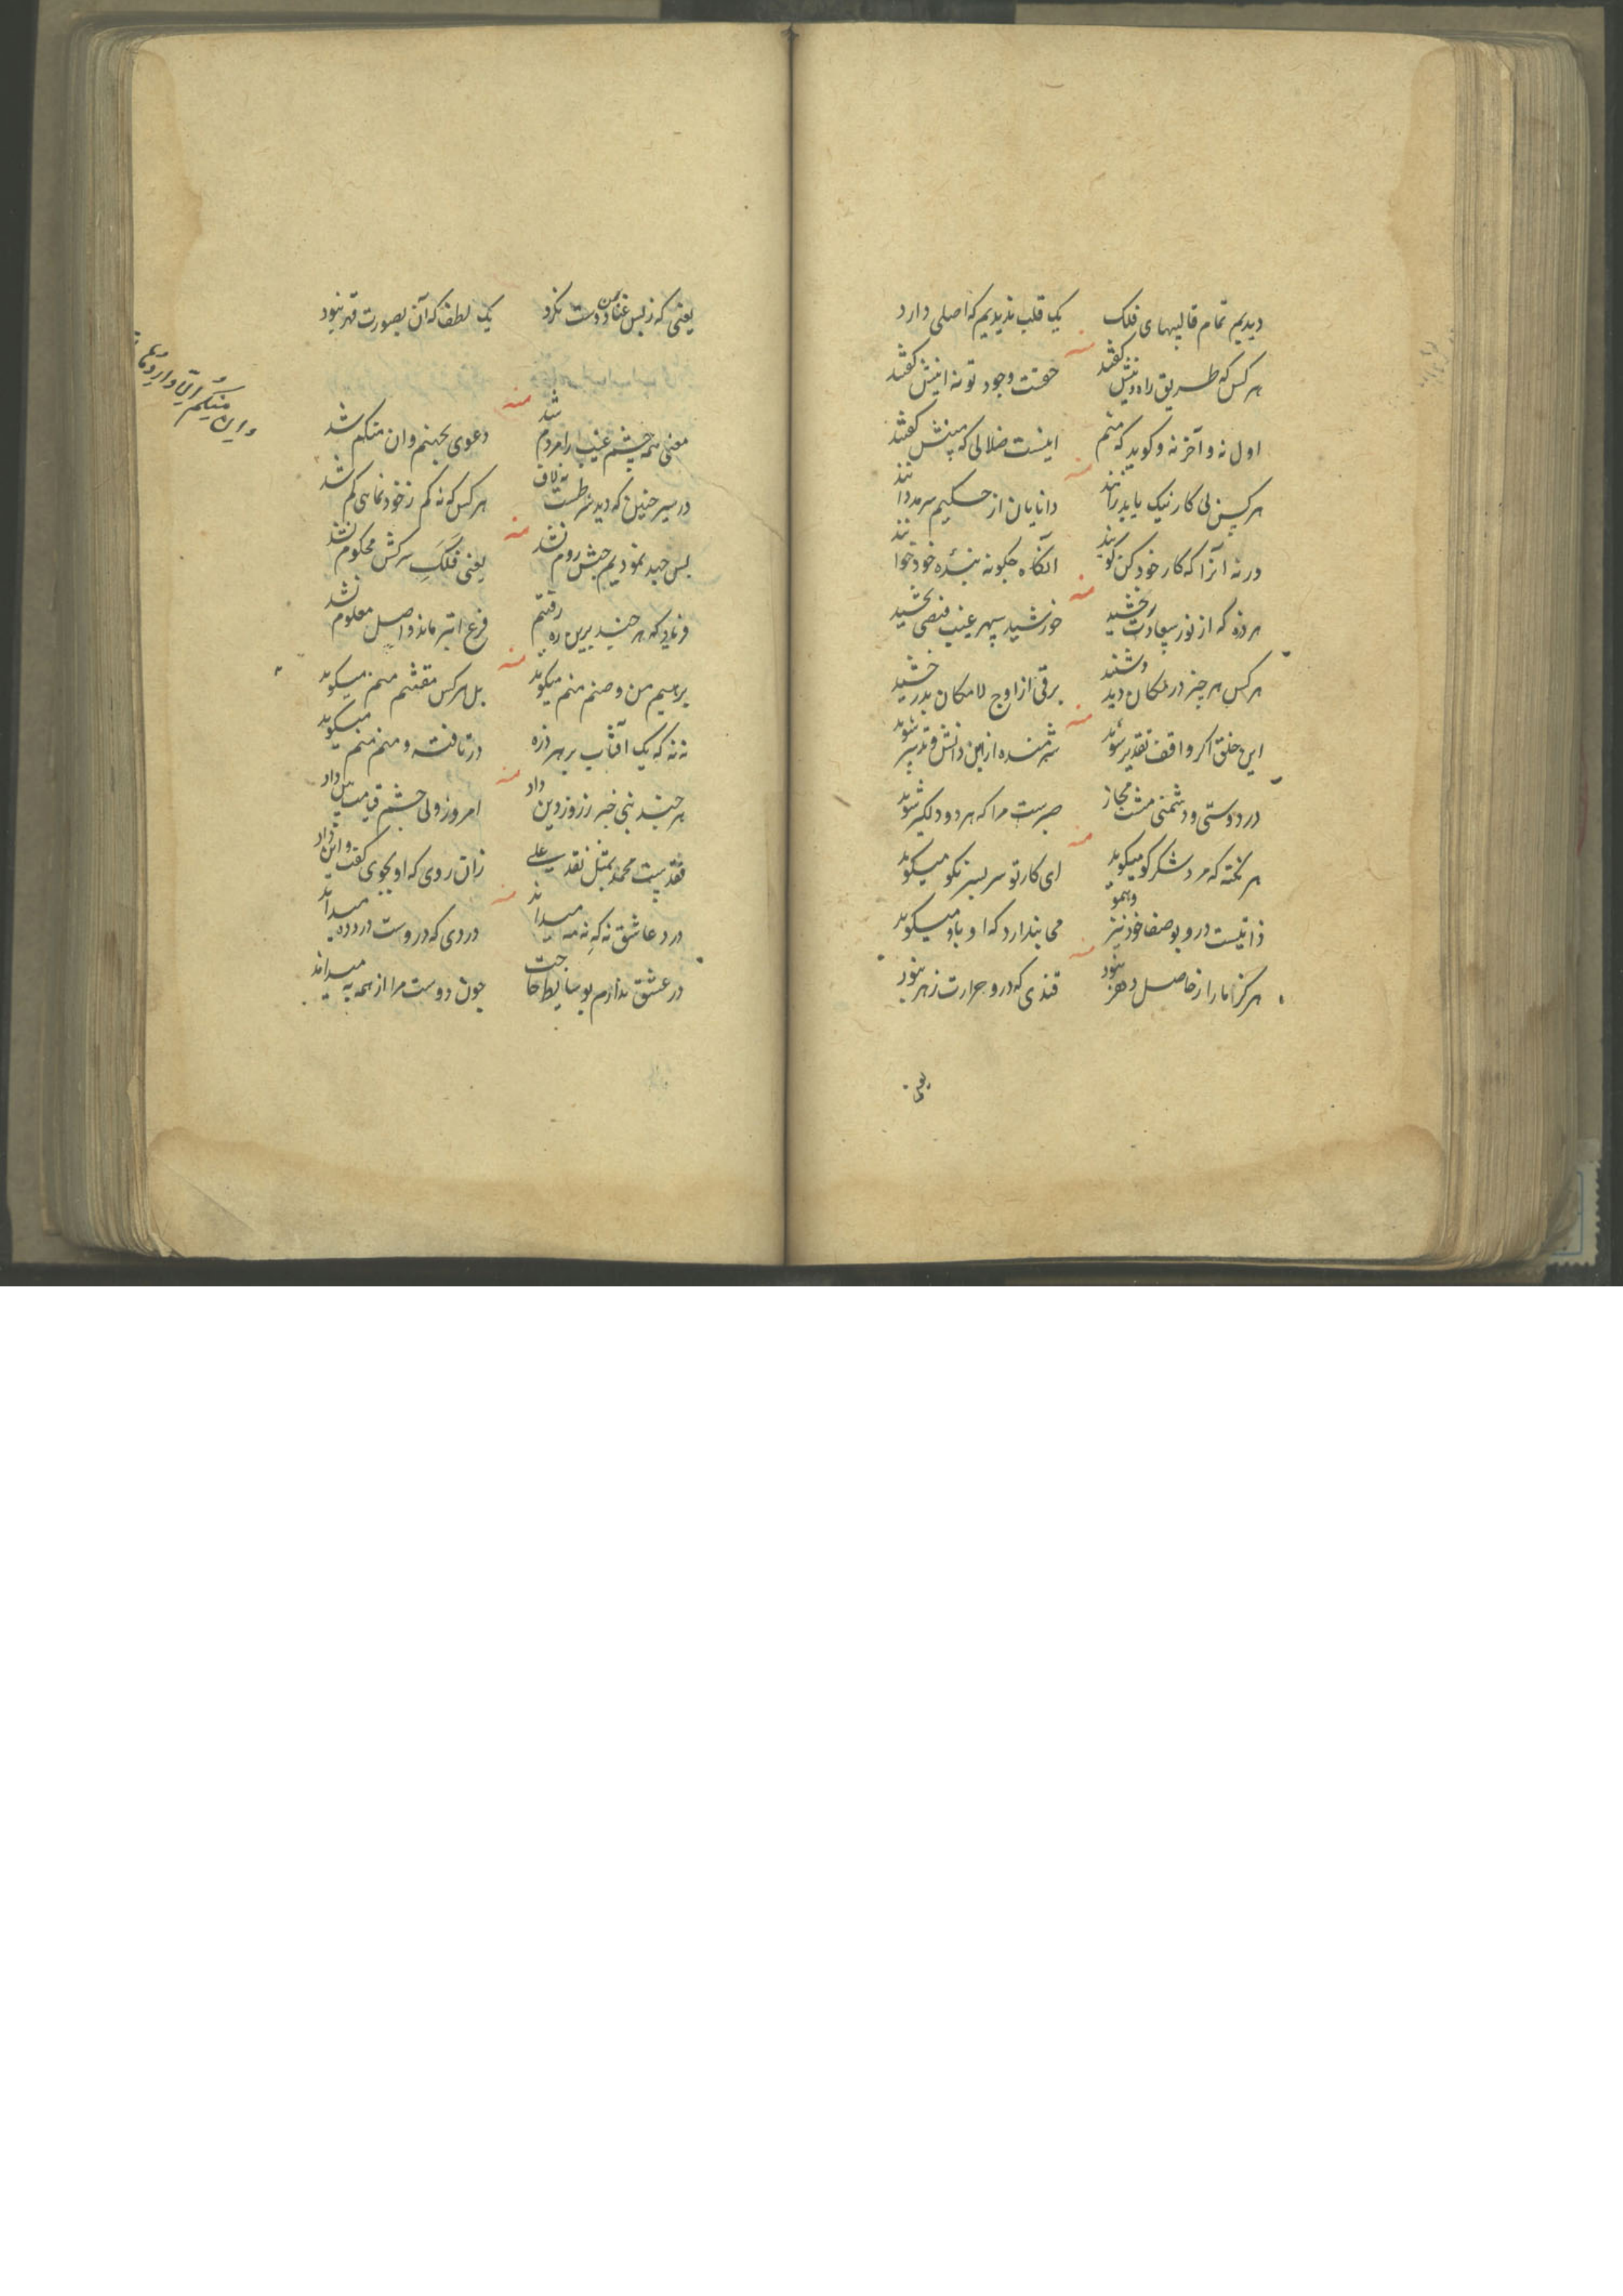 دیدیم تمام قالبهای فلک یک قلب ندیدیم که اصلی دارد
منه
هر کس که طریق راه دینش گفتند حقست وجود تو نه اینش گفتند
اول نه و آخر نه و کوید که منم اینست ضلالی که مبینش گفتند
منه
هر کس پی کار نیک یا بد رانند دانایان از حکیم سرمد دانند
ورنه آنرا که کار خود کن گویند آنگاه چگونه بندهٔ خود خوانند
منه
هر ذره که از نور سعادت رخشید خورشید سپهر غیب فیضی بخشید
هر کس هر چیز در مکان دید و شنید برقی از اوج لامکان بدرخشید
منه
این خلق اگر واقف تقدیر شوند شرمنده ازین دانش و تدبیر شوند
در دوستی و دشمنی مشت مجاز صبرست مرا که هر دو دلگیر شوند
منه
هر نکته که مرد شکر گو میگوید ای کار تو سر بسر نکو میگوید
ذاتیست درو بوصف خود نیز و همو می پندارد که او باو میگوید
منه
هرگز ما را ز حاصل دهر نبود قندی که درو حرارت زهر نبود
یعنی
یعنی که ز بس عناد من دوست نکرد یک لطف که آن بصورت قهر نبود
منه
معنی همه چشم غیب را مردم شد دعوی بجهنم و ان منکم شد
در سیر چنین که دید شرطست نه لاف هر کس که نه کم ز خودنمایی کم شد
منه
بس جهد نمودیم حبش روم نشد یعنی فلک سرکش محکوم نشد
فریاد که هر چند برین ره رفتم فرع ابتر ماند و اصل معلوم نشد
منه
برهیم من و صنم منم میگوید بل هر کس مقتشم منم میگوید
نه نه که یک آفتاب بر هر ذره در تافته و منم منم میگوید
منه
هر چند نبی خبر ز روز دین داد امروز ولی چشم قیامت بین داد
نقدیست محمد بمثل نقد علی زان روی که او بجوی گفت و این داد
منه
درد عاشق نه که نه مه میداند دردی که دروست درد ده میداند
در عشق ندارم بوسایط حاجت چون دوست مرا از همه به میداند
وان منکم الا واردها